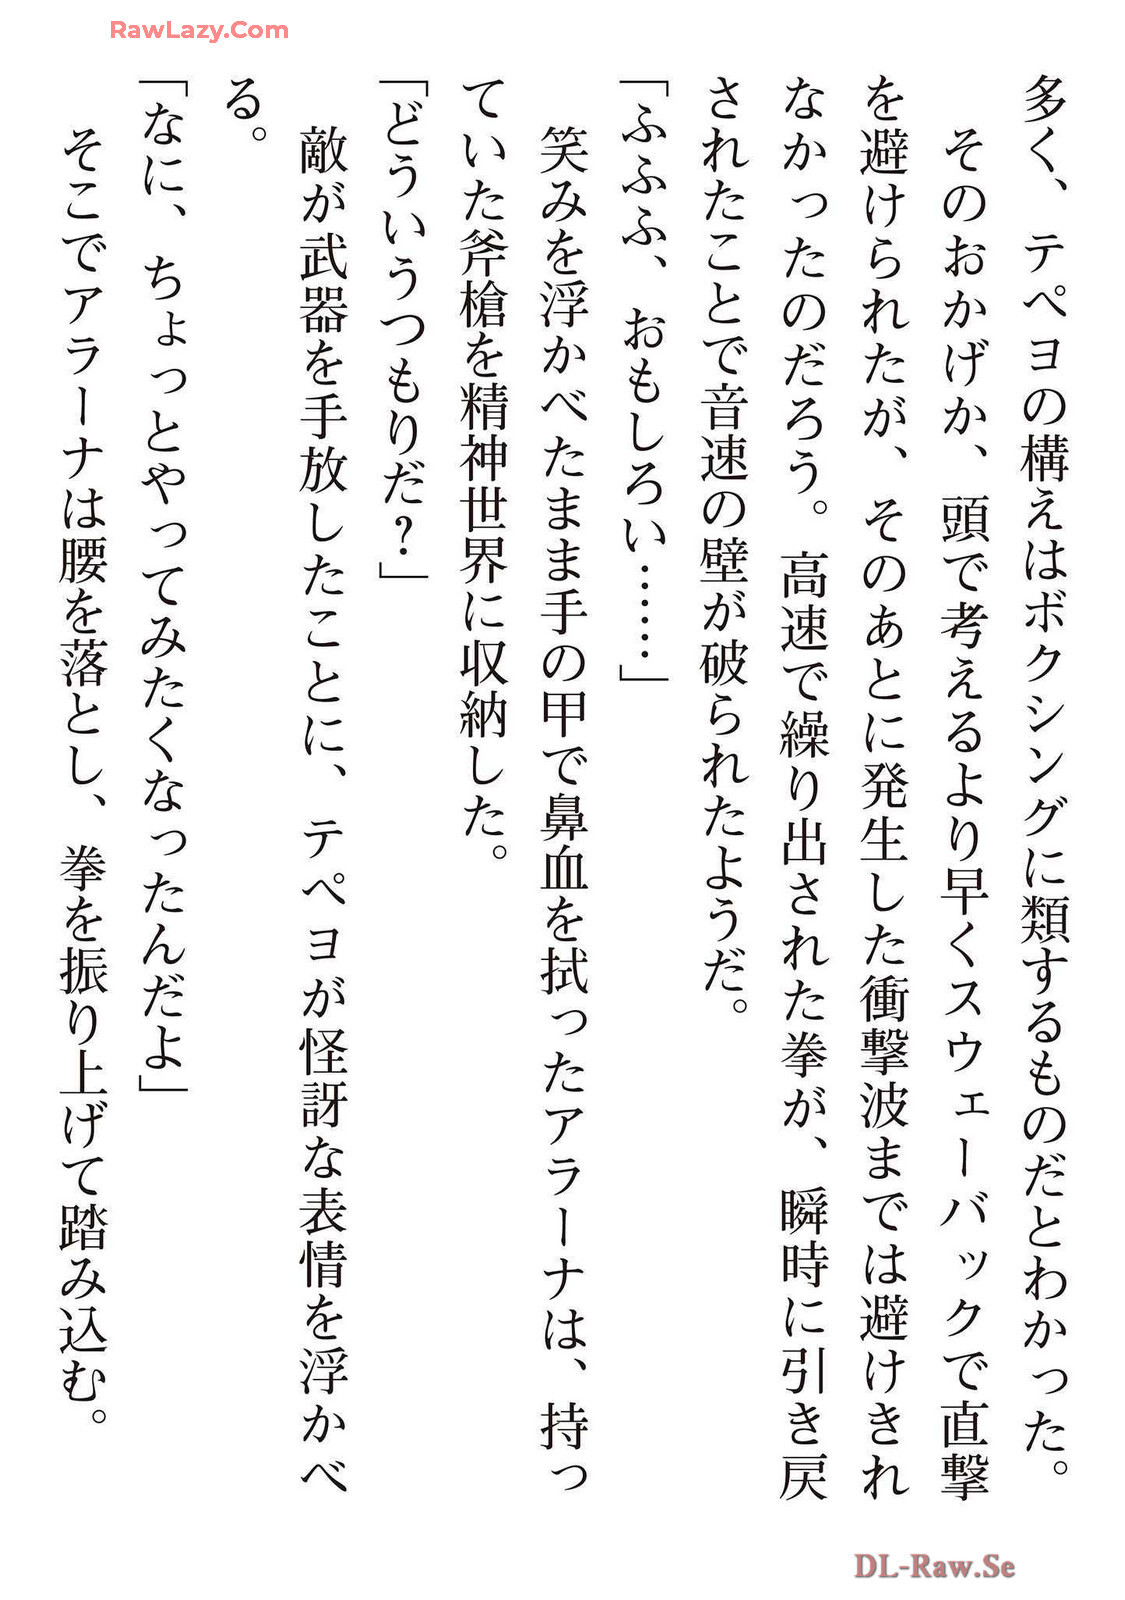 RawLazy.Com
多く、テペヨの構えはボクシングに類するものだとわかった。
そのおかげか、頭で考えるより早くスウェーバックで直撃
を避けられたが、そのあとに発生した衝撃波までは避けきれ
なかったのだろう。高速で繰り出された拳が、瞬時に引き戻
されたことで音速の壁が破られたようだ。
「ふふふ、おもしろい……」
笑みを浮かべたまま手の甲で鼻血を拭ったアラーナは、持っ
ていた斧槍を精神世界に収納した。
「どういうつもりだ？」
敵が武器を手放したことに、テペヨが怪訝な表情を浮かべ
る。
「なに、ちょっとやってみたくなったんだよ」
そこでアラーナは腰を落とし、拳を振り上げて踏み込む。
DL-Raw.Se